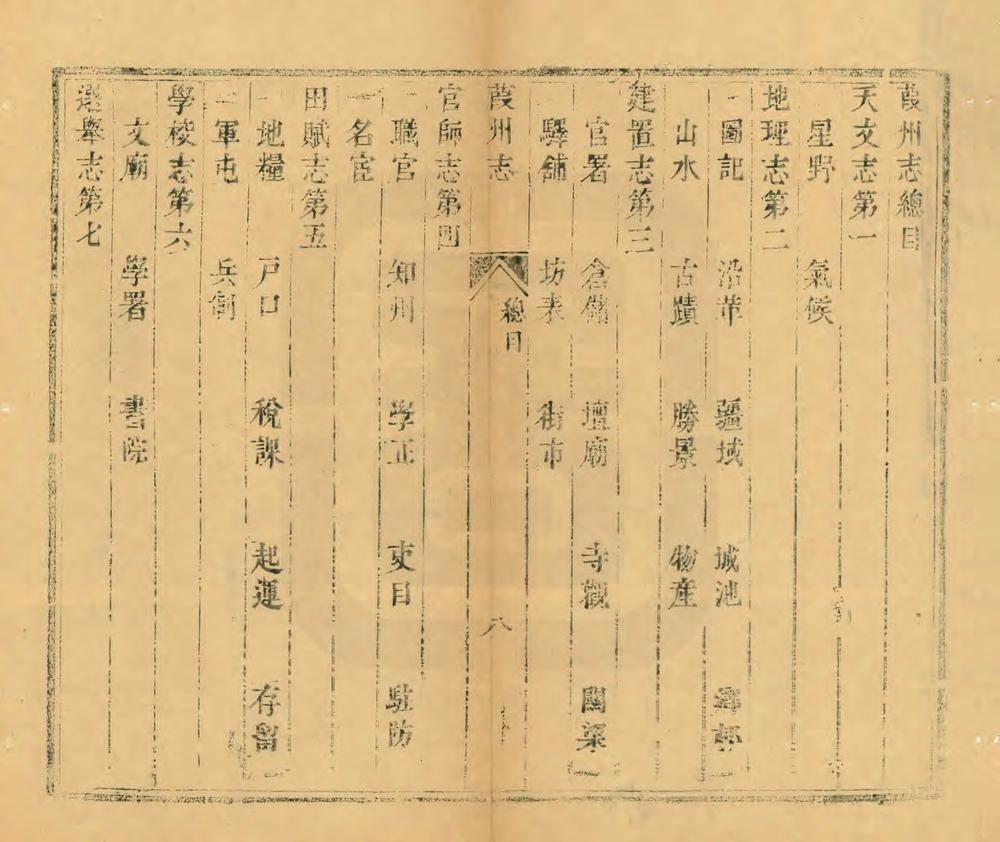 葭州志總目
天文志第一
星野 氣候
地理志第二
圖記 沿革 疆域 城池
山水 古蹟 勝景 物產
建置志第三
官署 倉儲 壇廟 寺觀 關梁
驛鋪 坊表 街市
葭州志 總目 八
官師志第四
職官 知州 學正 吏目 駐防
名宦
田賦志第五
地糧 戶口 稅課 起運 存留
軍屯 兵制
學校志第六
文廟 學署 書院
選舉志第七